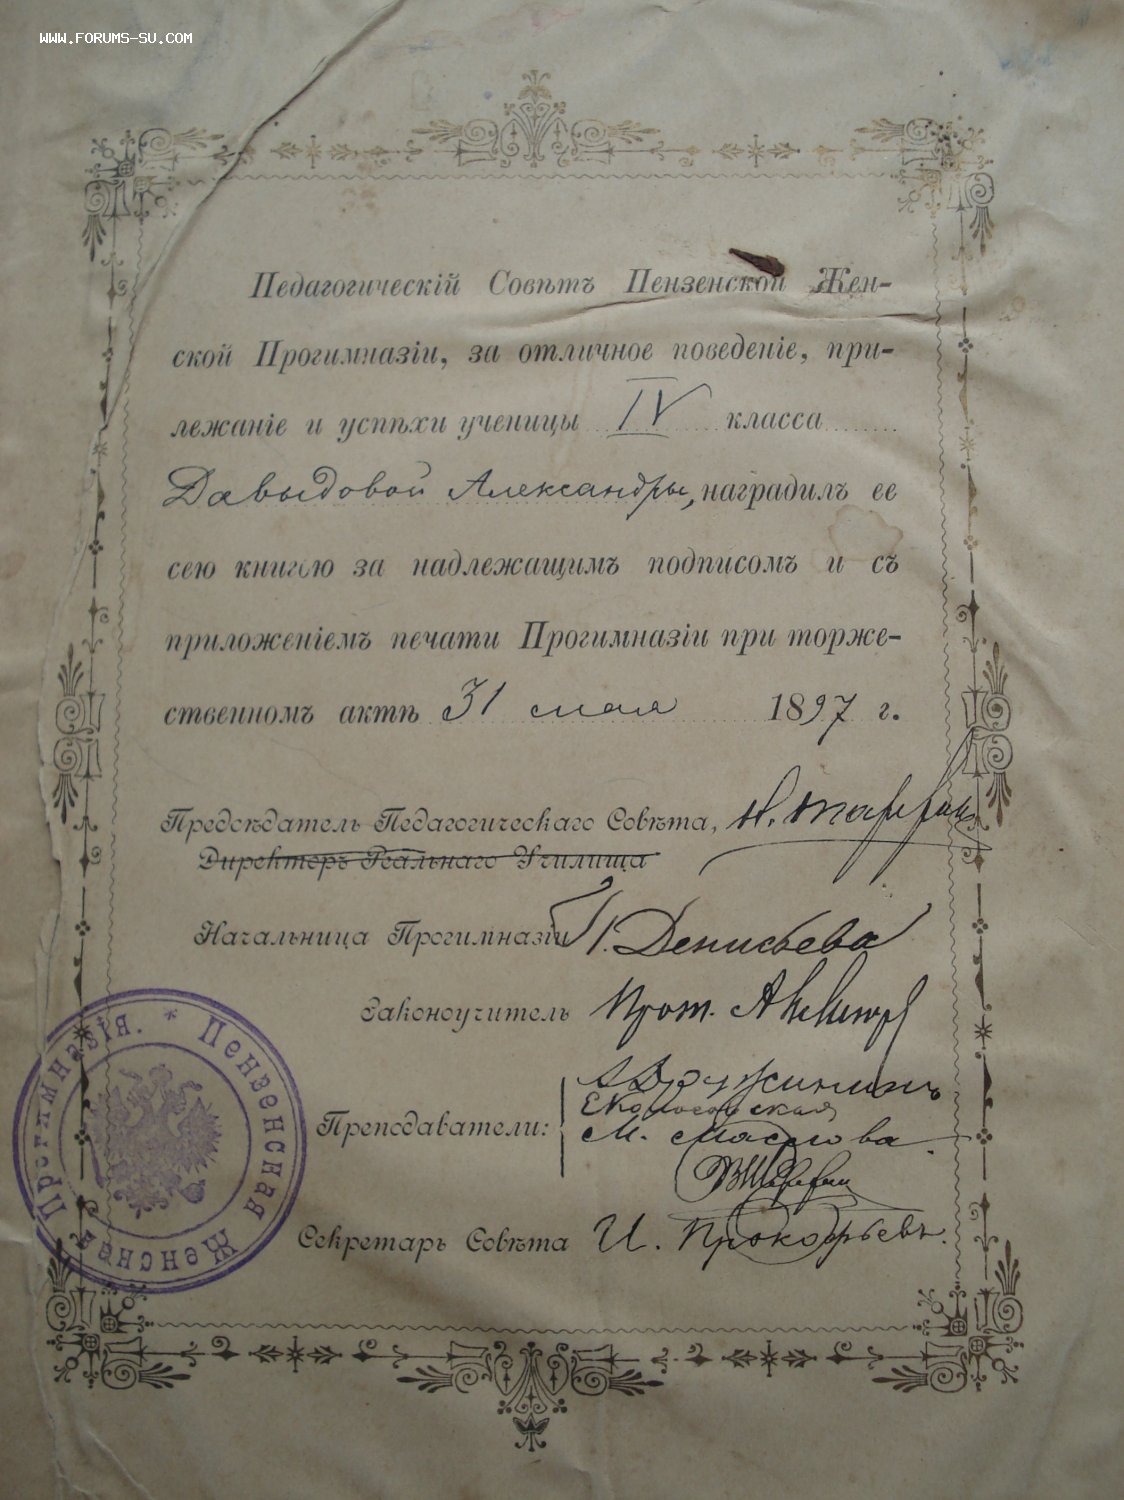 WWW.FORUMS-SU.COM
Педагогическій Совѣтъ Пензенской Жен-
ской Прогимназіи, за отличное поведеніе, при-
лежаніе и успѣхи ученицы IV класса
Давыдовой Александры, наградилъ ее
сею книгою за надлежащимъ подписомъ и съ
приложеніемъ печати Прогимназіи при торже-
ственномъ актѣ 31 мая 1897 г.
Предсѣдатель Педагогическаго Совѣта,
Директоръ Реальнаго Училища
Начальница Прогимназіи Денисьева
Законоучитель Прот.
Дружининъ
Преподаватели:
М. Маслова
Секретарь Совѣта И. Прокофьевъ.
Пензенская Женская Прогимназія. *